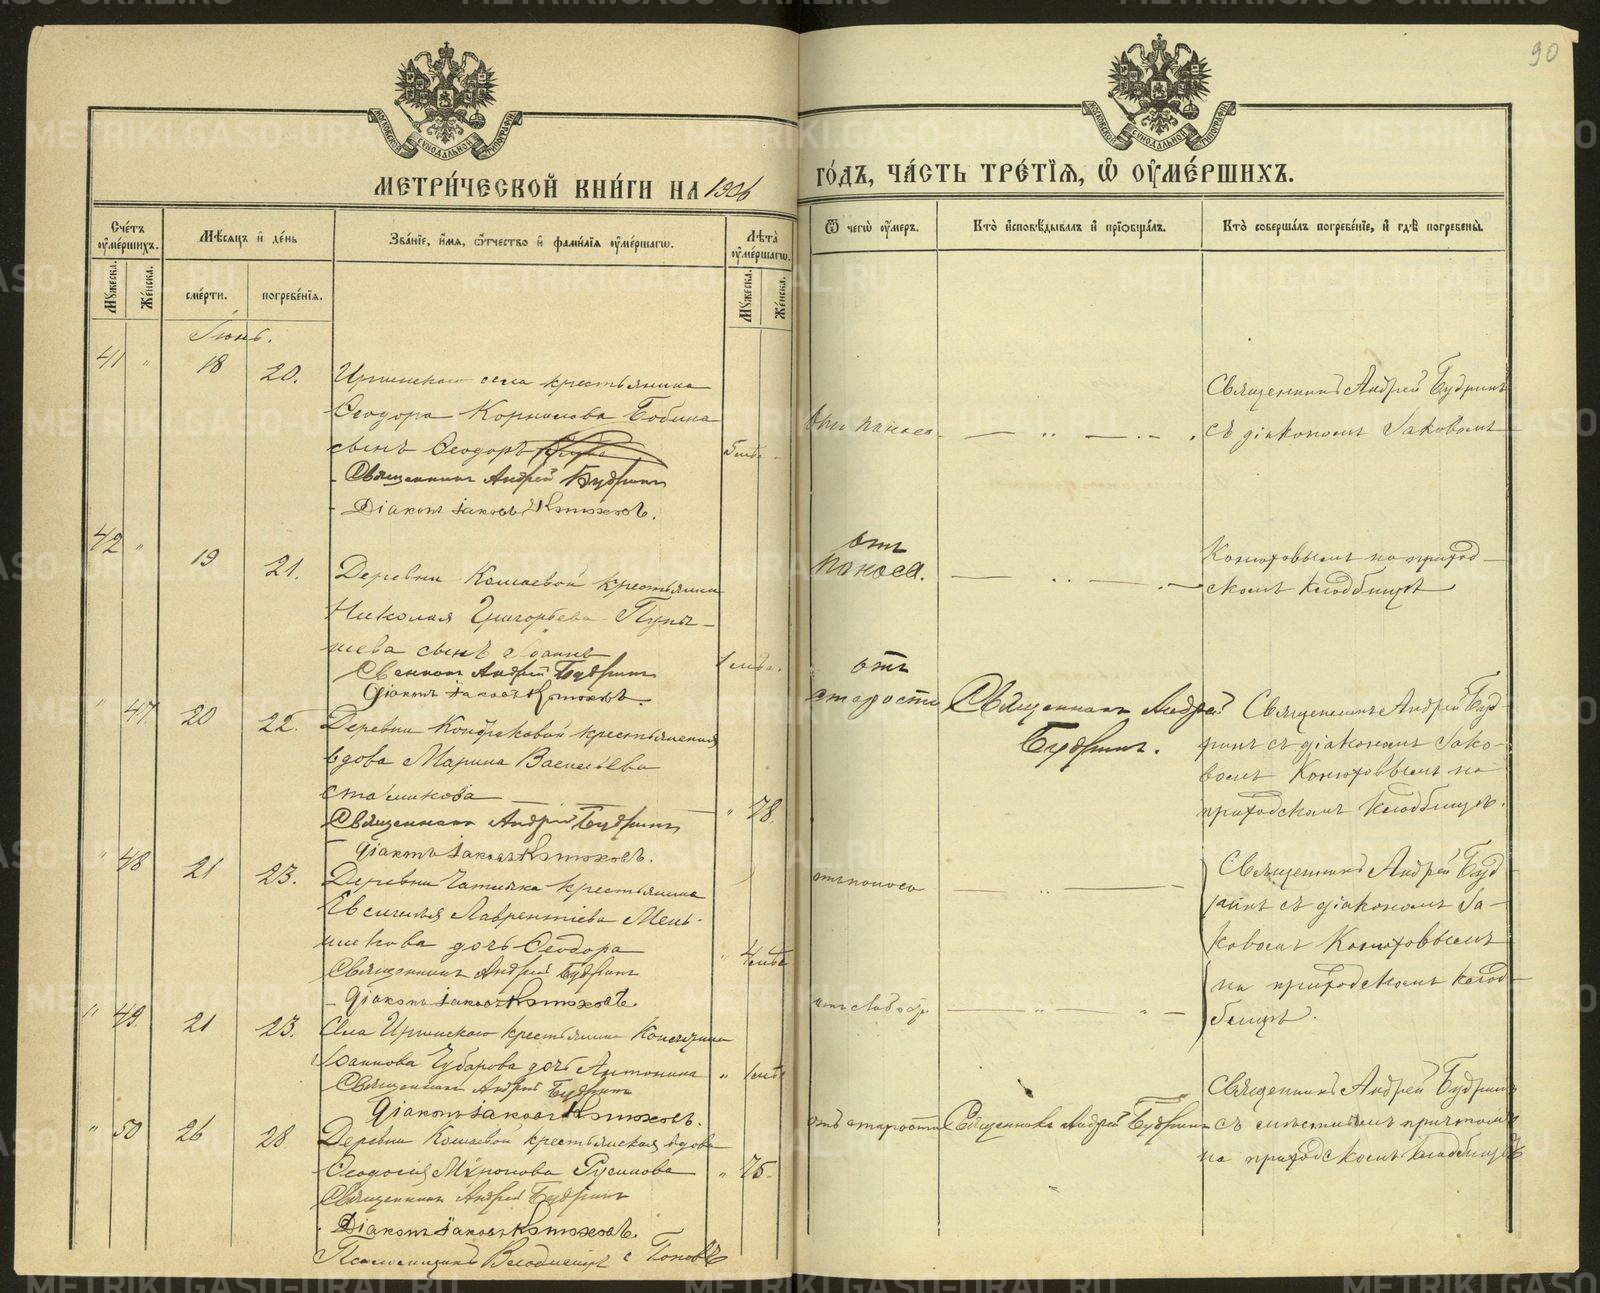 90
МОСКОВСКОЙ СѴНОДАЛЬНОЙ ТИПОГРАФІИ
МОСКОВСКОЙ СѴНОДАЛЬНОЙ ТИПОГРАФІИ
МЕТРИ́ЧЕСКОЙ КНИ́ГИ НА 1906
ГО́ДЪ, ЧА́СТЬ ТРЕ́ТІѦ, Ѽ ОУ҆МЕ́РШИХЪ.
Сче́тъ оу҆ме́ршихъ.
Мѣ́сѧцъ и҆ де́нь
Зва́нїе, и҆́мѧ, ѻ҆́тчество и҆ фами́лїѧ оу҆ме́ршагѡ.
Лѣ́та оу҆ме́ршагѡ.
Ѿ чегѡ̀ оу҆́меръ.
Кто̀ и҆сповѣ́дывалъ и҆ прїѡбща́лъ.
Кто̀ соверша́лъ погребе́нїе, и҆ гдѣ̀ погребены̀.
Мꙋ́жеска.
Же́нска.
сме́рти.
погребе́нїѧ.
Мꙋ́жеска.
Же́нска.
Іюнь.
41 " 18 20.
Иргинскаго села крестьянина
Ѳеодора Корнилова Бобина
сынъ Ѳеодоръ
Священникъ Андрей Будринъ
Діаконъ Іаковъ Конюховъ.
отъ поноса
Священникъ Андрей Будринъ
съ діакономъ Іаковомъ
42 " 19 21.
Деревни Кошаевой крестьянина
Николая Григорьева
сынъ Іоаннъ
Священникъ Андрей Будринъ
Діаконъ Іаковъ Конюховъ.
отъ
поноса.
Конюховымъ на приход-
скомъ кладбищѣ
" 47 20 22.
Деревни крестьянская
вдова Марина Васильева
" 78.
Священникъ Андрей Будринъ
Діаконъ Іаковъ Конюховъ.
отъ
старости
Священникъ Андрей
Будринъ.
Священникъ Андрей Буд-
ринъ съ діакономъ Іако-
вомъ Конюховымъ на
приходскомъ кладбищѣ.
" 48 21 23.
Деревни крестьянина
Лаврентіева Мень-
шикова дочь Ѳеодора
Священникъ Андрей Будринъ
Діаконъ Іаковъ Конюховъ.
отъ поноса
Священникъ Андрей Буд-
ринъ съ діакономъ Іа-
ковомъ Конюховымъ
на приходскомъ клад-
бищѣ.
" 49 21 23.
Села Иргинскаго крестьянина
Іоаннова Чубарова дочь Антонина
Священникъ Андрей Будринъ
Діаконъ Іаковъ Конюховъ.
" 50 26 28
Деревни Кошаевой крестьянская вдова
Ѳеодосія Миронова Русинова " 75.
Священникъ Андрей Будринъ
Діаконъ Іаковъ Конюховъ.
Псаломщикъ Поповъ
отъ старости
Священникъ Андрей Будринъ
Священникъ Андрей Будринъ
съ мѣстнымъ причтомъ
на приходскомъ кладбищѣ
METRIKI.GASO-URAL.RU